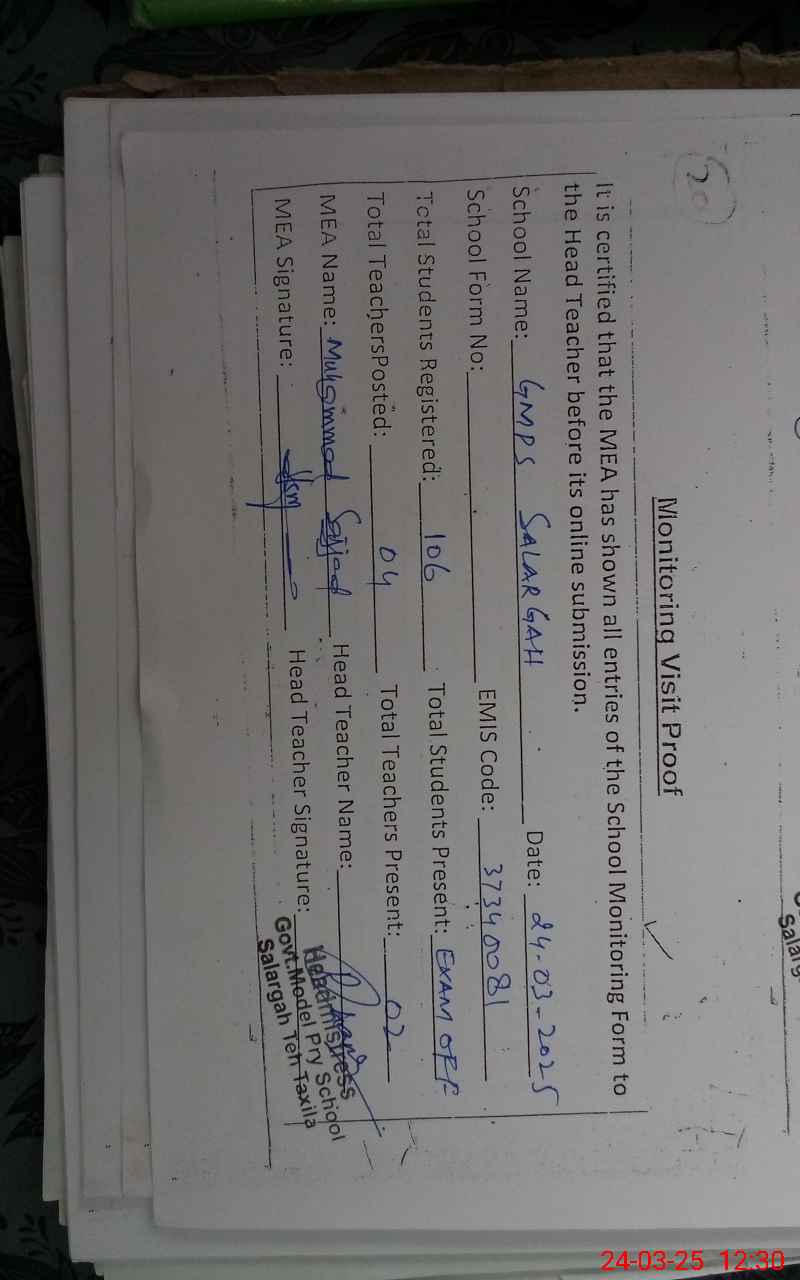 20
Monitoring Visit Proof
It is certified that the MEA has shown all entries of the School Monitoring Form to
the Head Teacher before its online submission.
School Name: GMPS SALARGAH Date: 24-03-2025
School Form No: EMIS Code: 37340081
Total Students Registered: 106 Total Students Present: EXAM OFF
Total TeachersPosted: 04 Total Teachers Present: 02
MEA Name: Muhammad Sajjad Head Teacher Name:
MEA Signature: Head Teacher Signature:
Headmistress
Govt.Model Pry School
Salargah Teh Taxila
Salarg
24-03-25 12:30